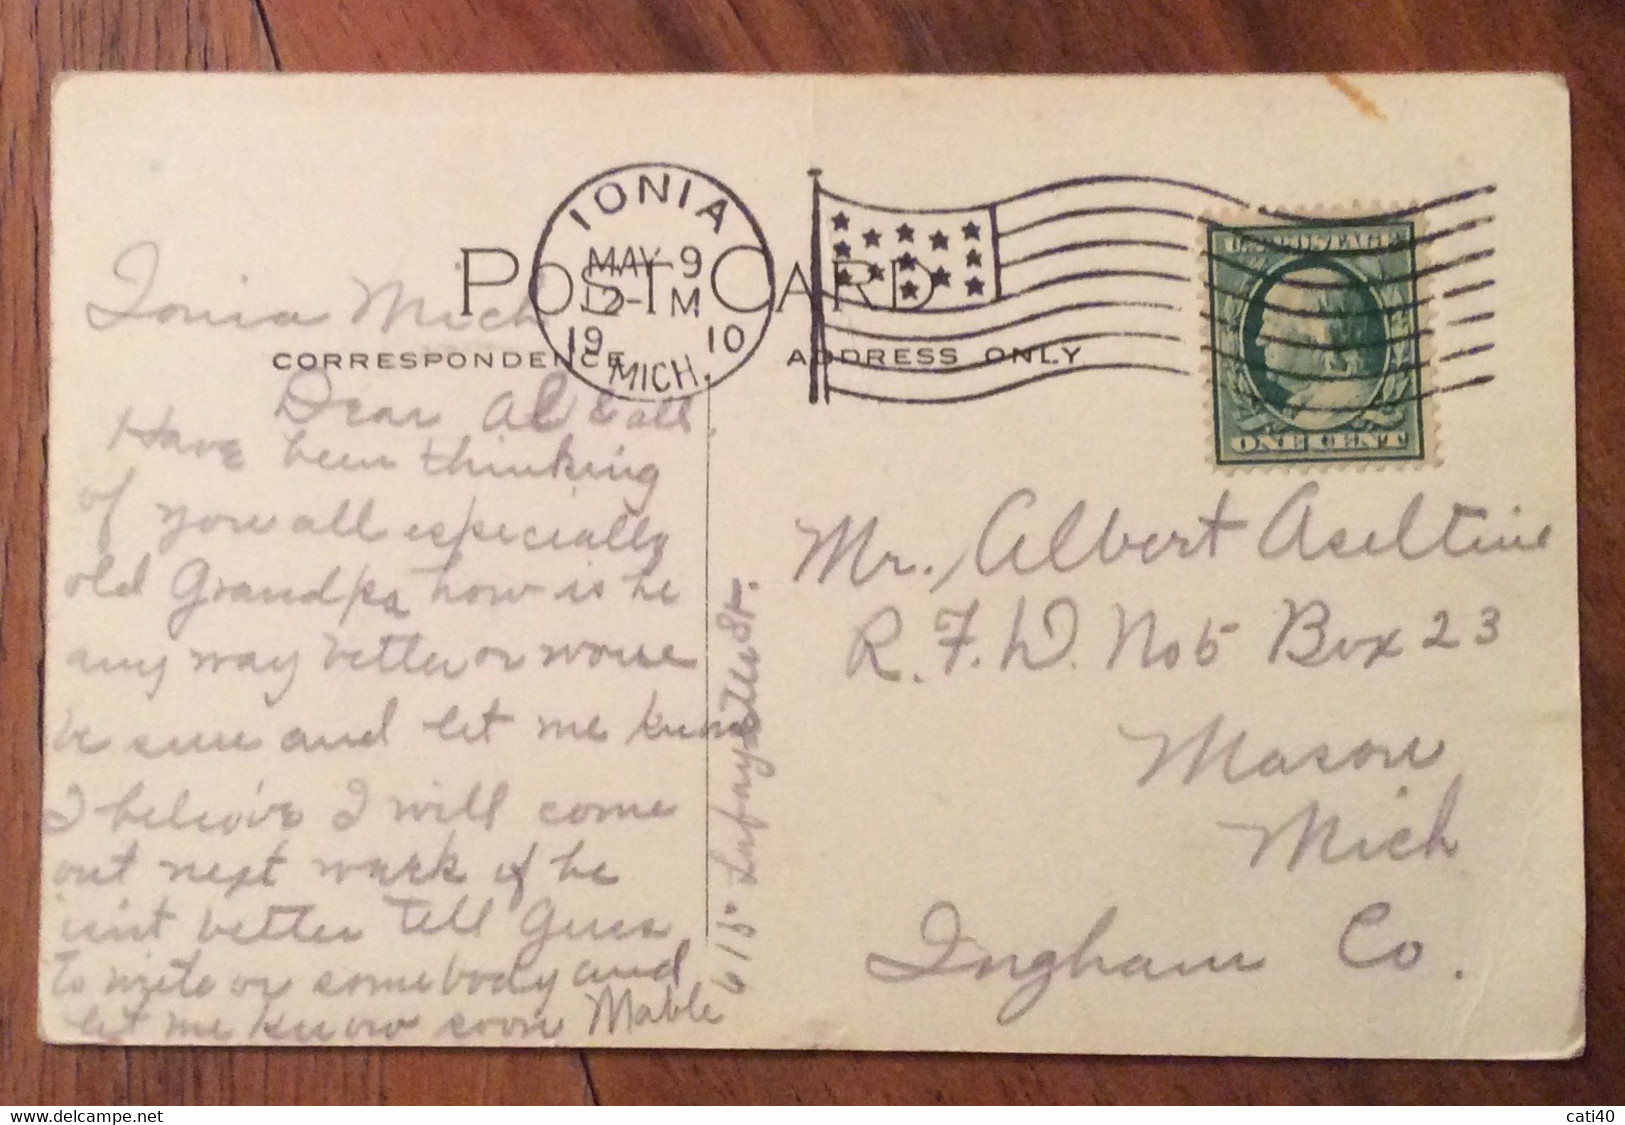 POST CARD
CORRESPONDENCE
ADDRESS ONLY
IONIA
MAY 9
12-M
1910
MICH.
U.S. POSTAGE
ONE CENT
Ionia Mich
Dear Al & all.
Have been thinking
of you all especially
old Grandpa how is he
any way better or worse
be sure and let me know
I believe I will come
out next week if he
isnt better tell
to write or somebody and
let me know soon Mable
615 Lafayette St.
Mr. Albert Aseltine
R. F. D. No 5 Box 23
Mason
Mich
Ingham Co.
delcampe.net
cati40